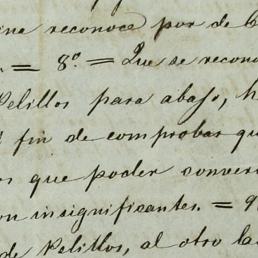 ne reconoce por de
= 8º = Que se recono
Pelillos para abajo, h
fin de comprobar qu
os que poder conver
on insignificantes. = 9
de Pelillos, al otro la